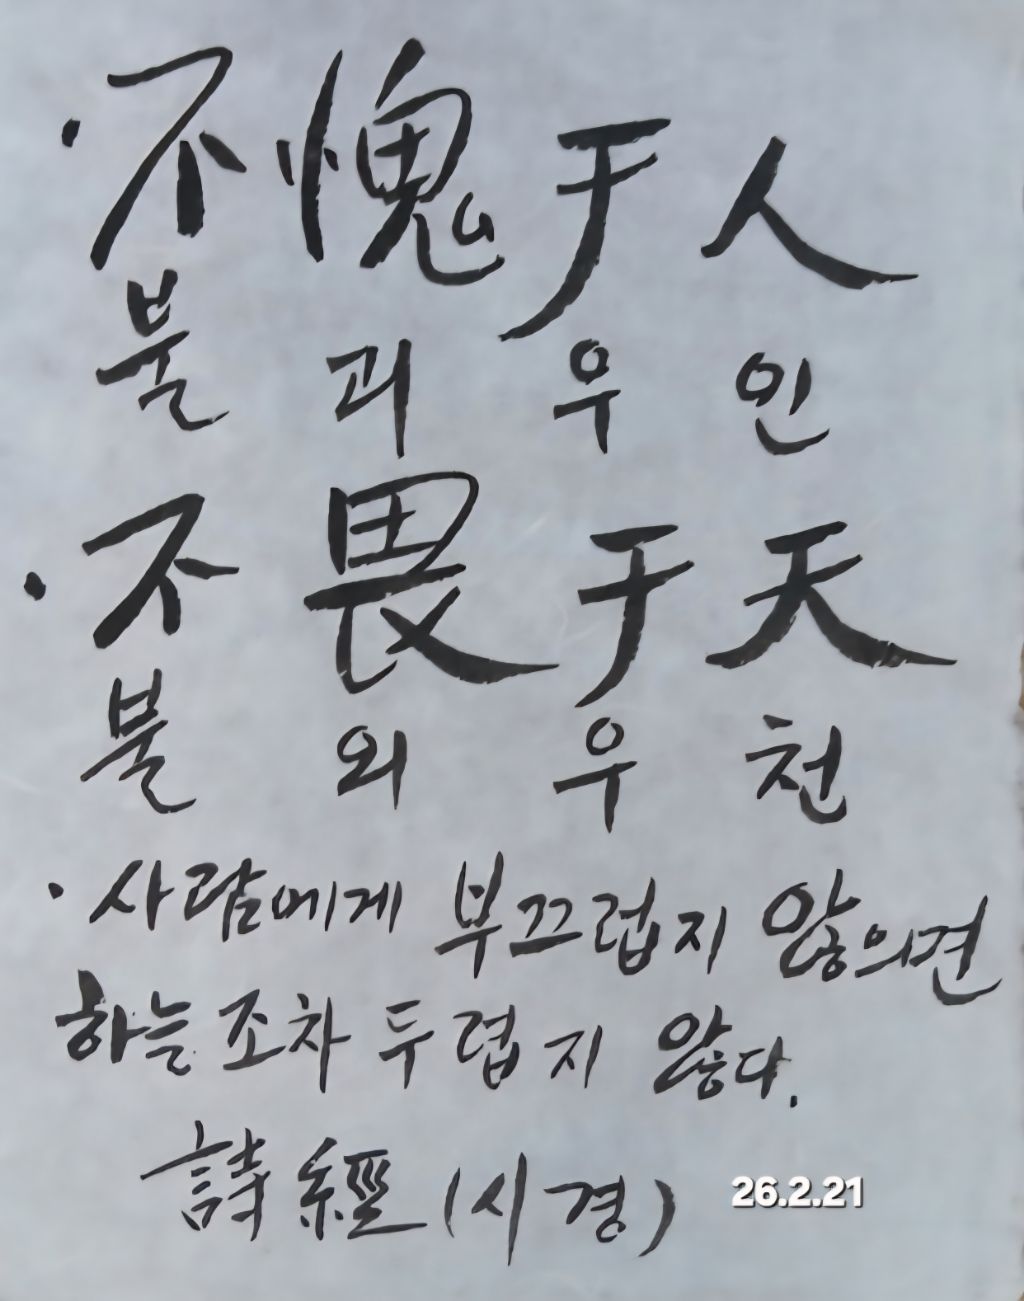 · 不愧于人
불 괴 우 인
· 不畏于天
불 외 우 천
· 사람에게 부끄럽지 않으면
하늘조차 두렵지 않다.
詩經 (시경) 26.2.21